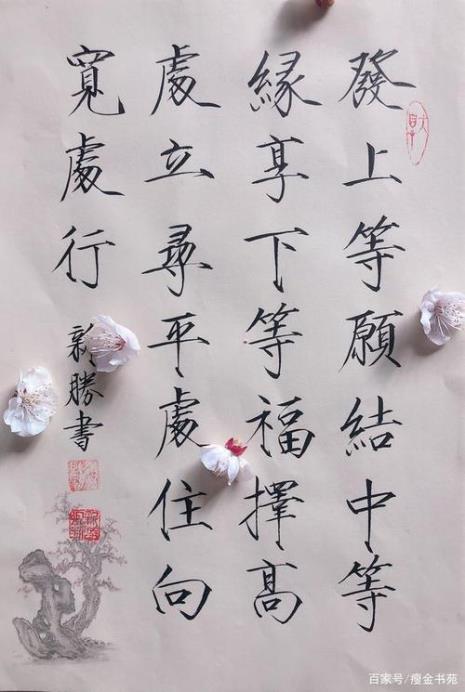 發上等願結中等
緣享下等福擇高
處立尋平處住向
寬處行
新勝書
百家号/瘦金书苑